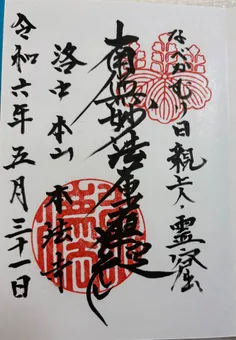 なべかむり日親上人霊窟
南無妙法蓮華経
洛中本山 本法寺
令和六年五月三十一日